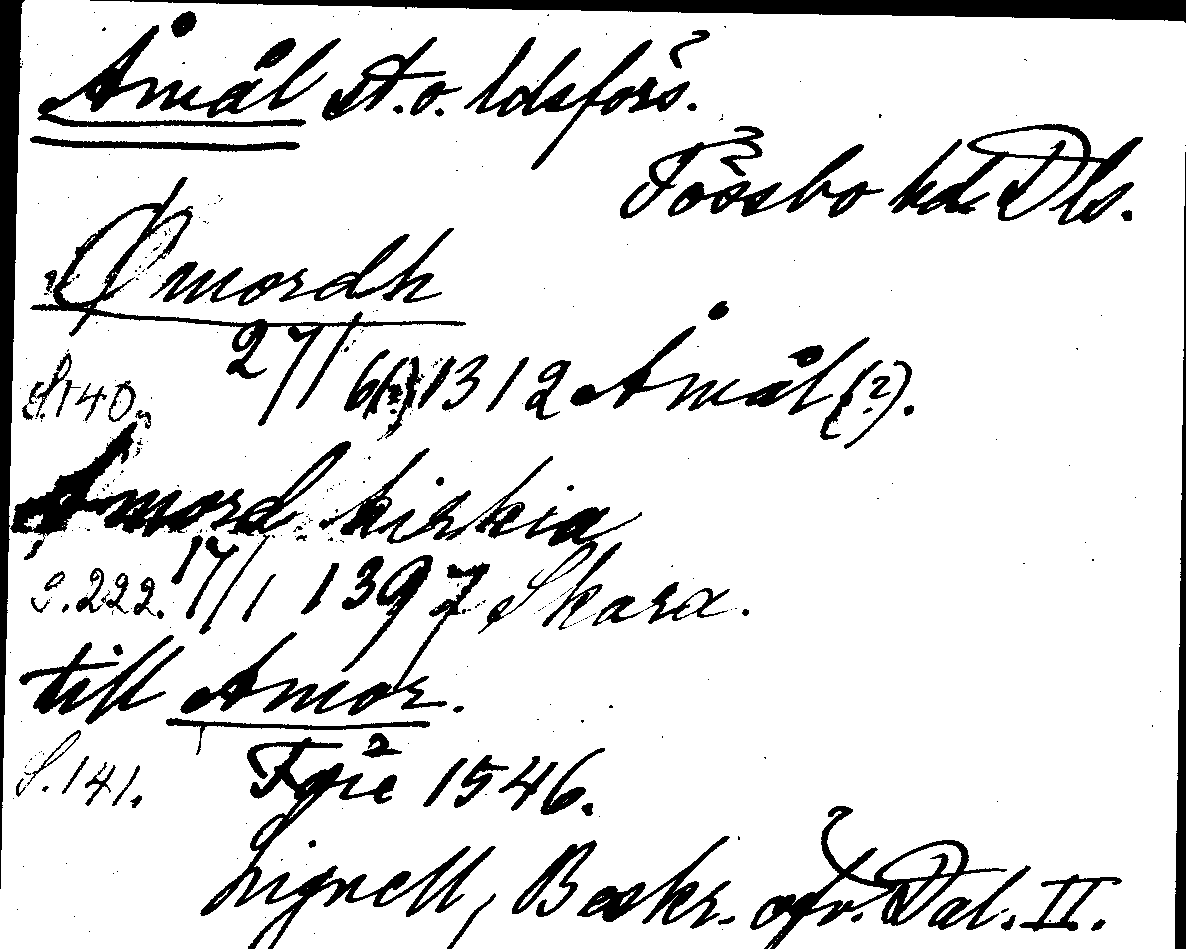 Åmål st. o. ldsförs.
Tössbo hd Dls.
Ømordh
S. 140. 27/6(?) 1312 Åmål (?).
Amord kirkia
S. 222. 17/1 1397 Skara.
till Amor.
S. 141. 1546.
Lignell, Beskr. öfv. Dal. II.